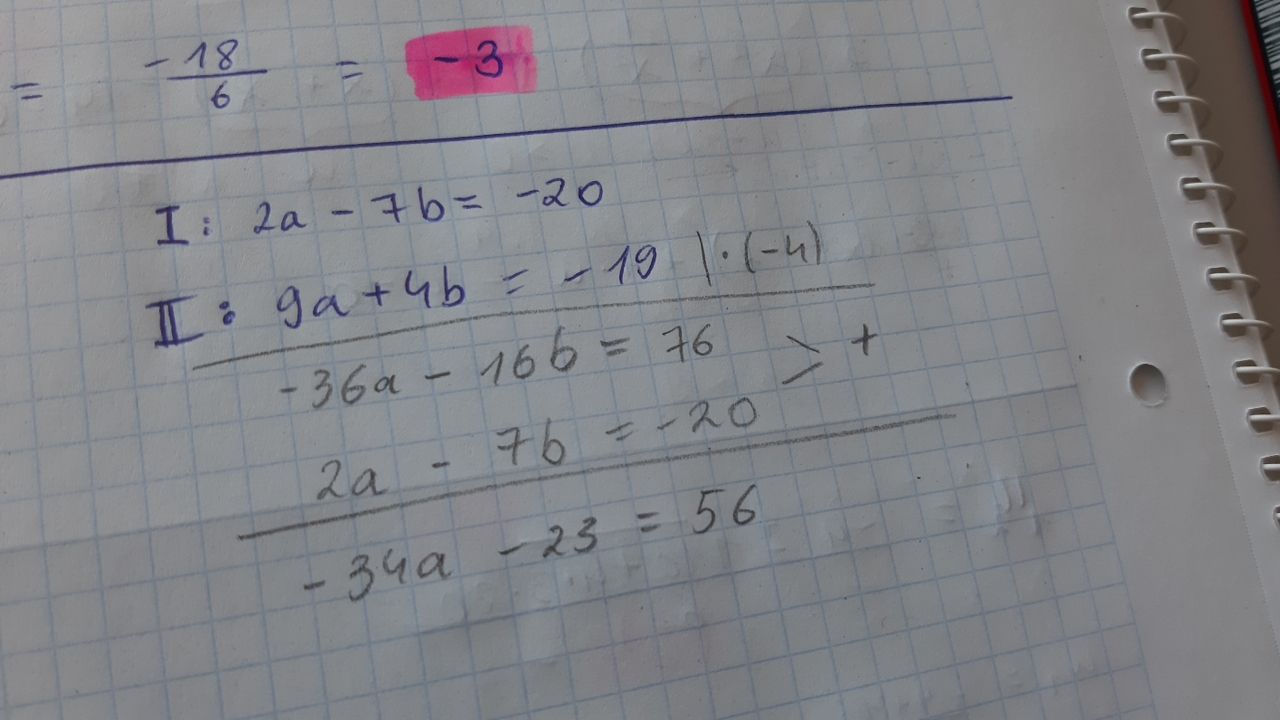 = -18/6 = -3
I: 2a - 7b = -20
II: 9a + 4b = -19 | · (-4)
-36a - 16b = 76 > +
2a - 7b = -20
-34a - 23 = 56